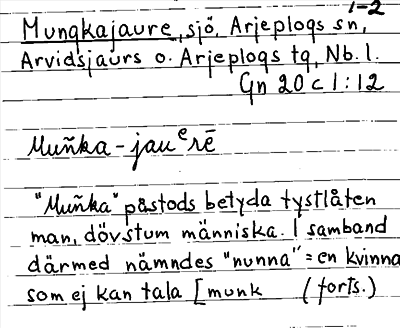 1-2
Munqkajaure, sjö, Arjeplogs sn,
Arvidsjaurs o. Arjeplogs tg, Nb. l.
Gn 20 c 1:12
Muñka-jauᵉrē
"Muñka" påstods betyda tystlåten
man, dövstum människa. I samband
därmed nämndes "nunna" = en kvinna
som ej kan tala [munk (forts.)